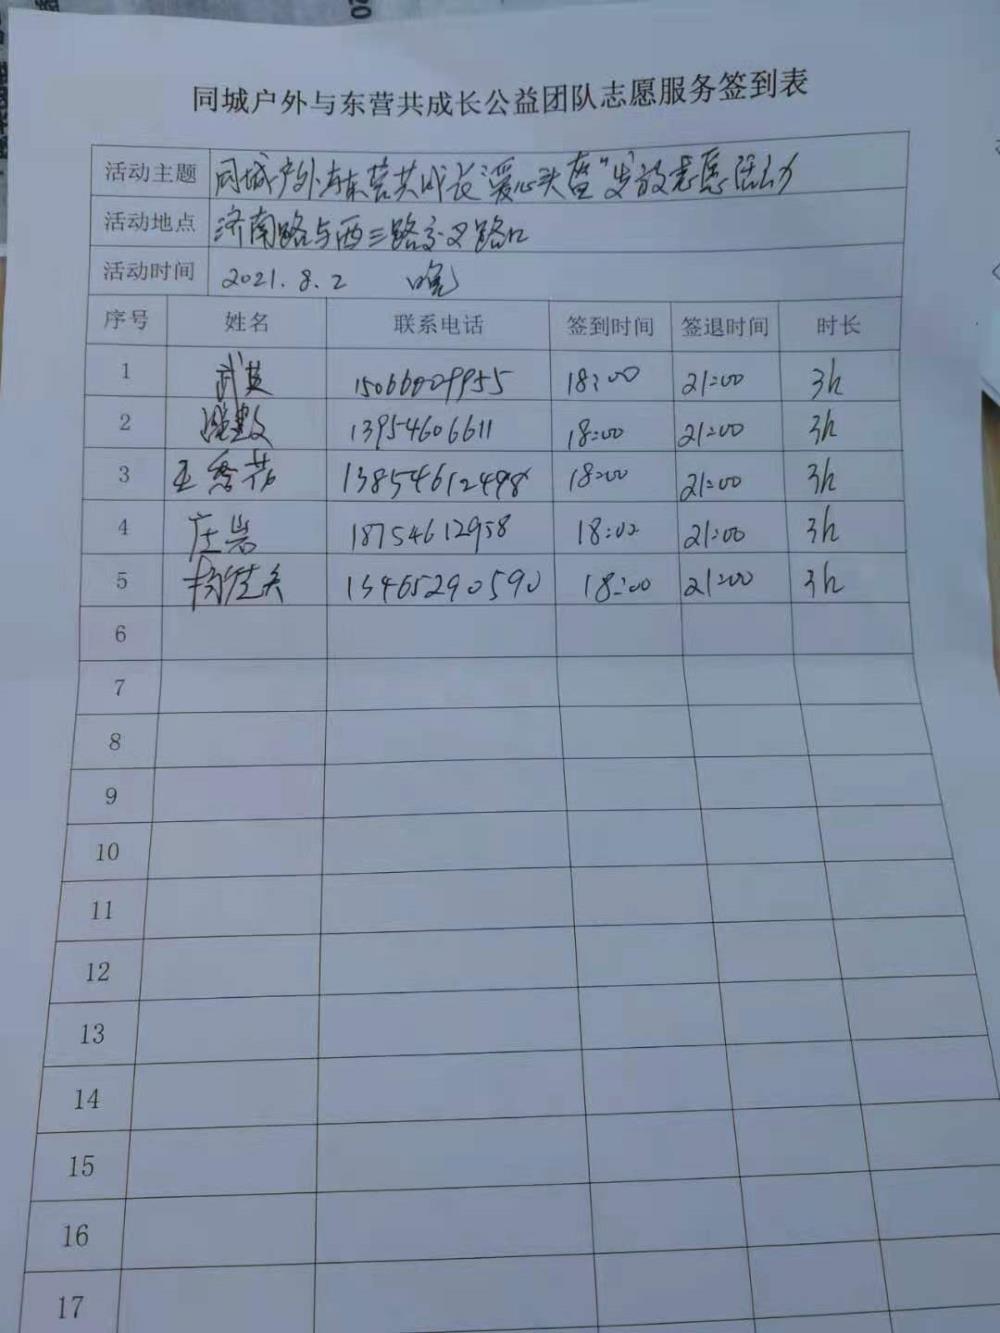 同城户外与东营共成长公益团队志愿服务签到表
活动主题 同城户外与东营共成长"爱心头盔"发放志愿活动
活动地点 济南路与西三路交叉路口
活动时间 2021.8.2 晚
序号 姓名 联系电话 签到时间 签退时间 时长
1 武英 15066009955 18:00 21:00 3h
2 13954606611 18:00 21:00 3h
3 13854612498 18:00 21:00 3h
4 庄岩 18754612958 18:00 21:00 3h
5 13465290590 18:00 21:00 3h
6
7
8
9
10
11
12
13
14
15
16
17